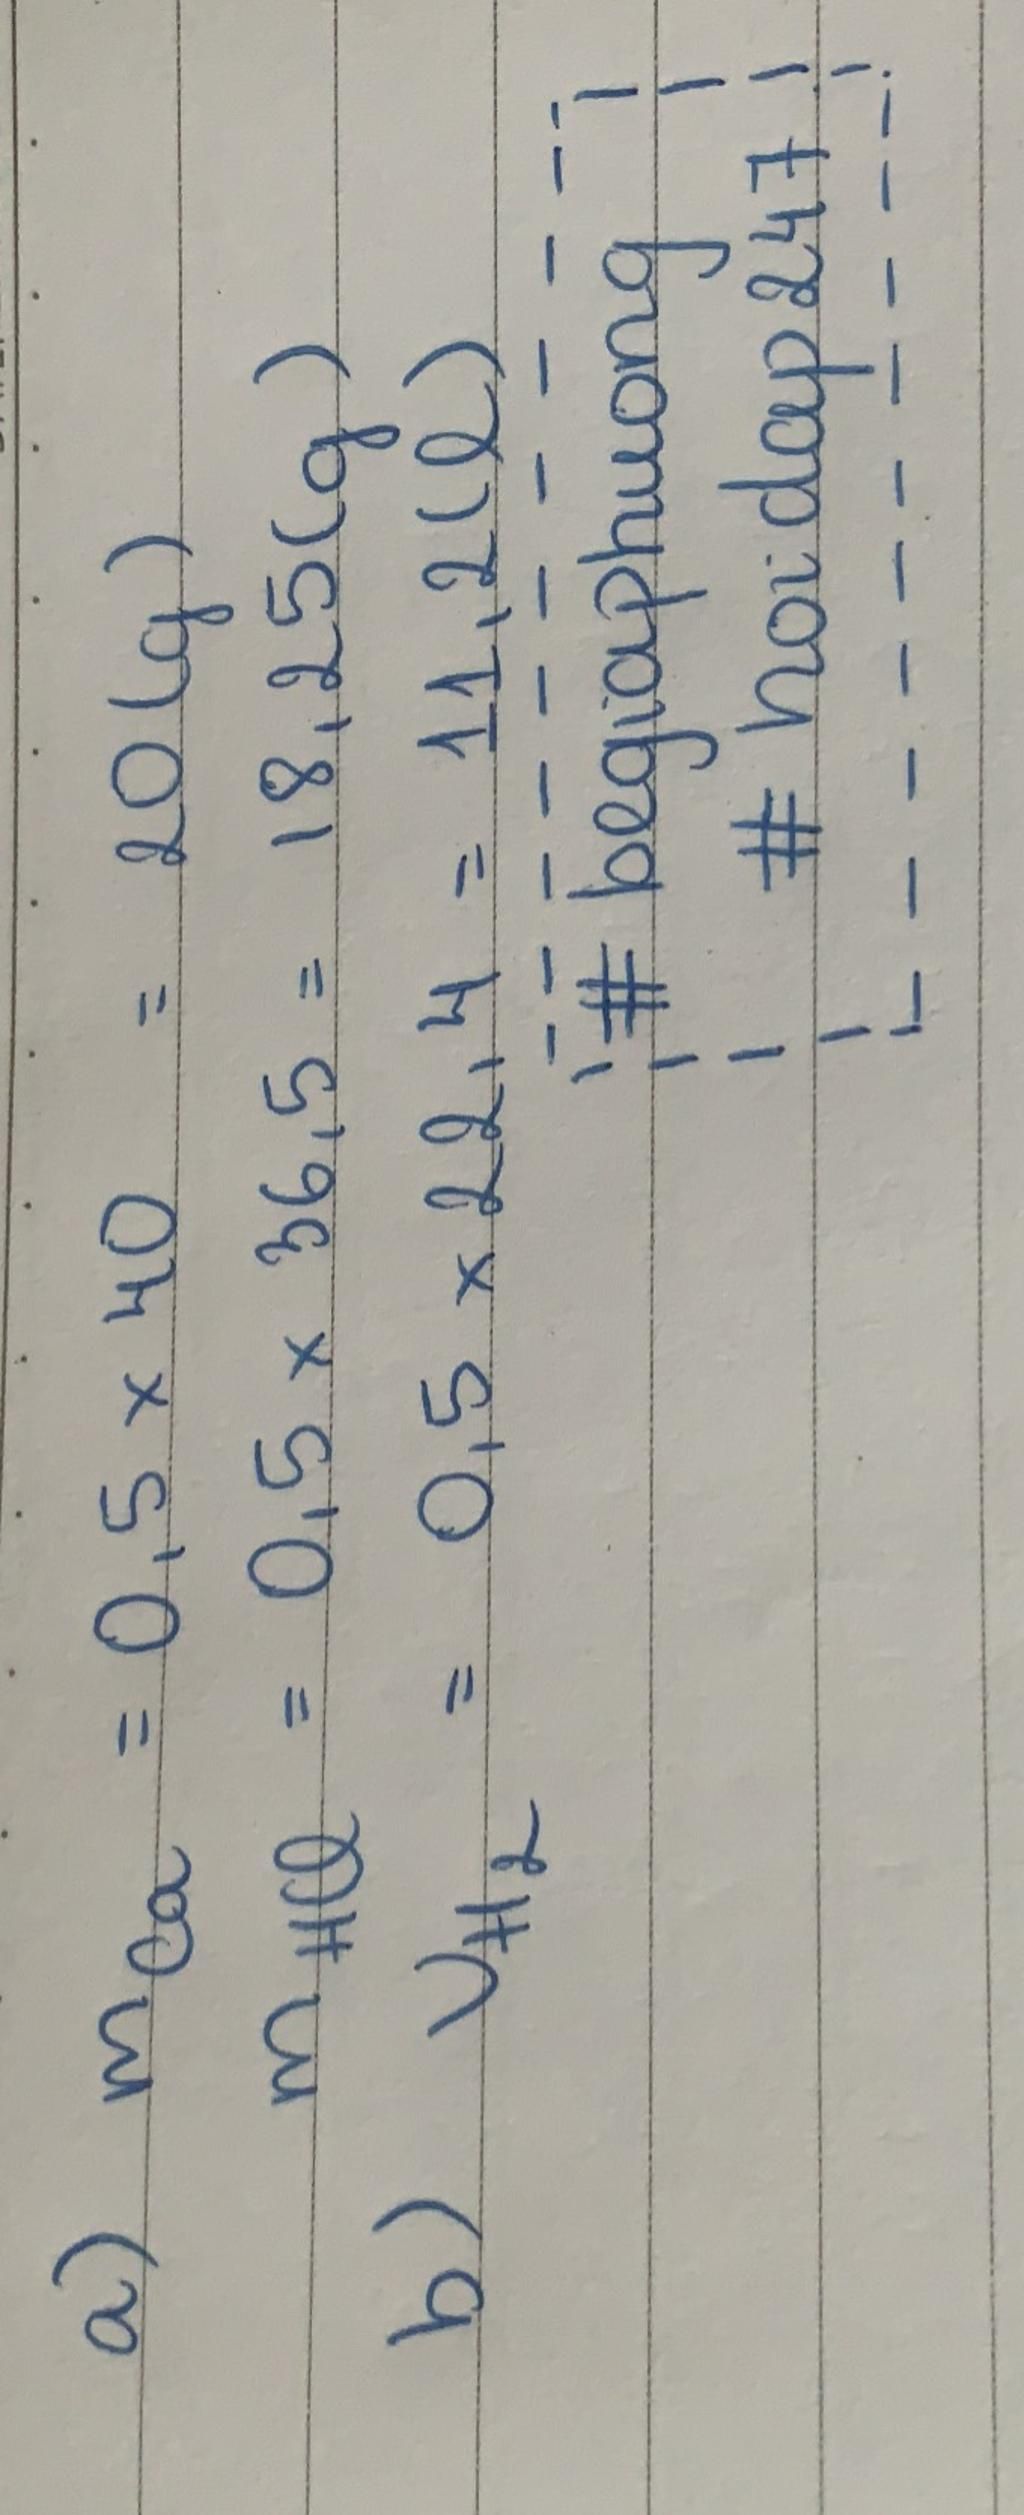 a) mCa = 0,5 x 40 = 20 (g)
mHCl = 0,5 x 36,5 = 18,25 (g)
b) VH2 = 0,5 x 22,4 = 11,2 (l)
# begiaphuong
# hoidap247